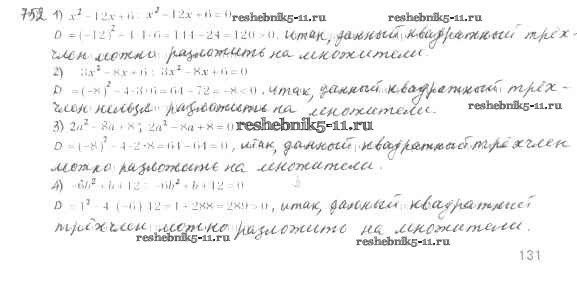 752 1) x² - 12x + 6 ; x² - 12x + 6 = 0
reshebnik5-11.ru
D = (-12)² - 4·1·6 = 144 - 24 = 120 > 0, итак, данный квадратный трёх-
член можно разложить на множители.
reshebnik5-11.ru
2) 3x² - 8x + 6 ; 3x² - 8x + 6 = 0
D = (-8)² - 4·3·6 = 64 - 72 = -8 < 0, итак, данный квадратный трёх-
член нельзя разложить на множители.
reshebnik5-11.ru
3) 2a² - 8a + 8 ; 2a² - 8a + 8 = 0
reshebnik5-11.ru
D = (-8)² - 4·2·8 = 64 - 64 = 0, итак, данный квадратный трёхчлен
можно разложить на множители.
4) -6b² + b + 12 ; -6b² + b + 12 = 0
D = 1² - 4·(-6)·12 = 1 + 288 = 289 > 0, итак, данный квадратный
reshebnik5-11.ru
трёхчлен можно разложить на множители.
reshebnik5-11.ru
131